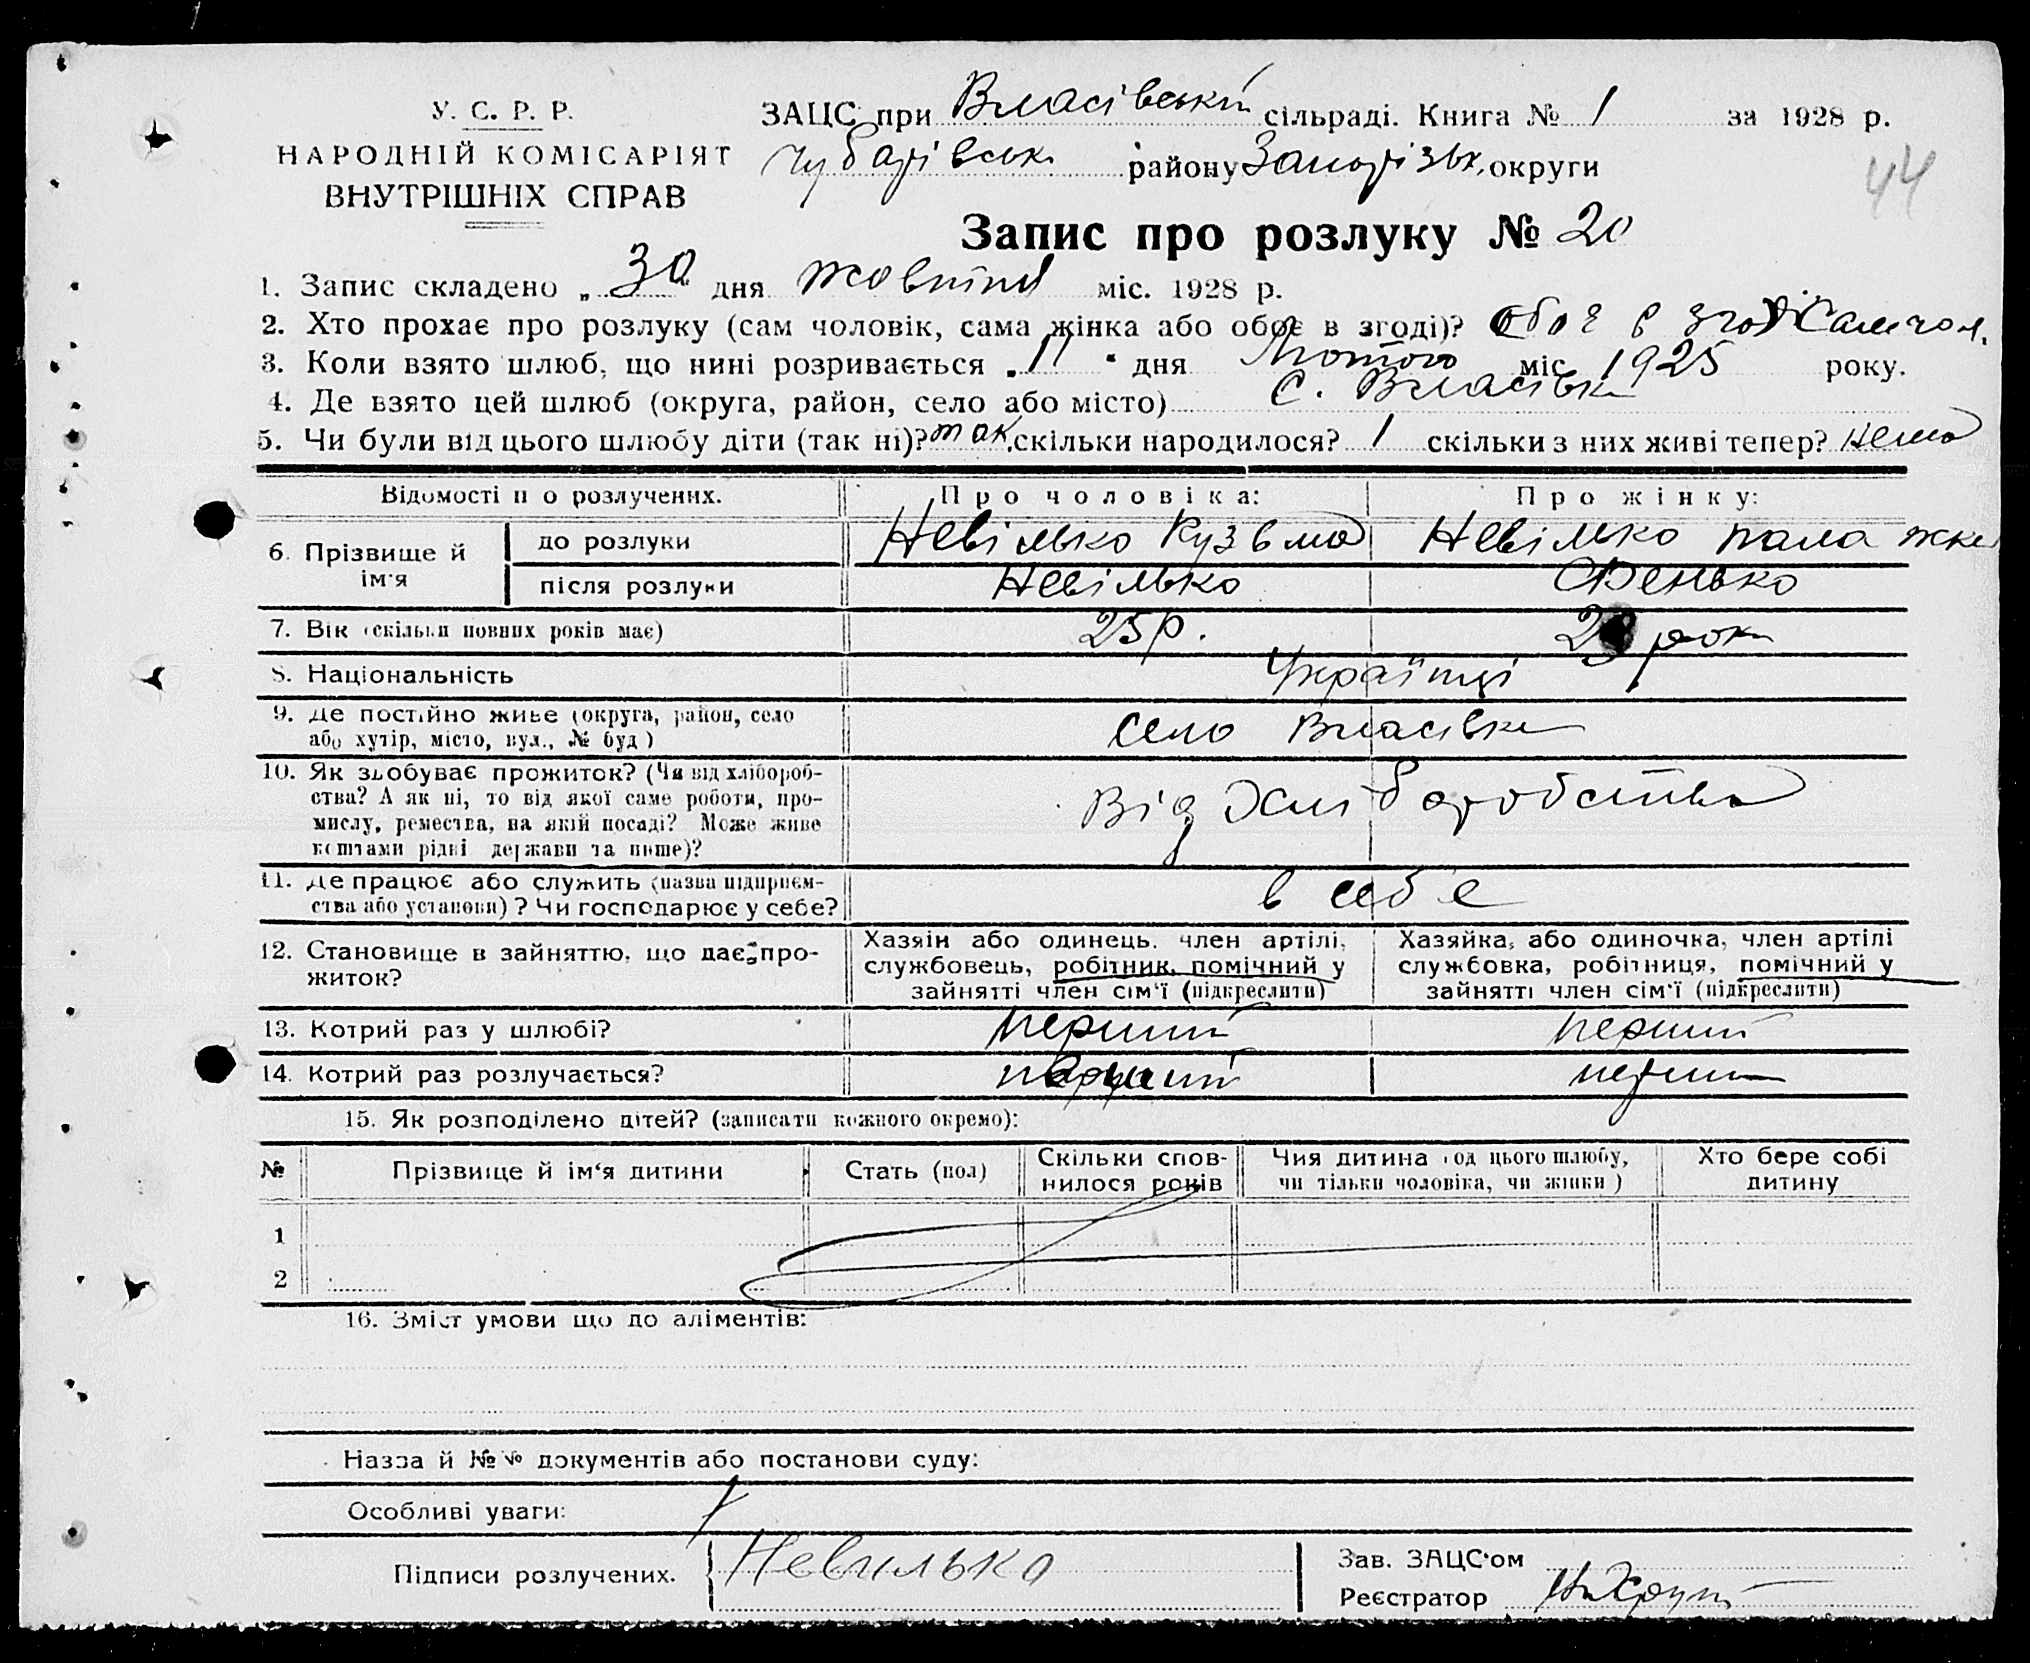 У. С. Р. Р.
НАРОДНІЙ КОМІСАРІЯТ
ВНУТРІШНІХ СПРАВ
ЗАЦС при Власівській сільраді. Книга № 1 за 1928 р.
Чубарівськ. району Запорізьк. округи
44
Запис про розлуку № 20
1. Запис складено „30" дня жовтня міс. 1928 р.
2. Хто прохає про розлуку (сам чоловік, сама жінка або обоє в згоді)? обоє в згоді Сам чол.
3. Коли взято шлюб, що нині розривається „11" дня Лютого міс. 1925 року.
4. Де взято цей шлюб (округа, район, село або місто) С. Власівка
5. Чи були від цього шлюбу діти (так ні)? так, скільки народилося? 1 скільки з них живі тепер? нема
Відомості п о розлучених. Про чоловіка: Про жінку:
6. Прізвище й ім'я до розлуки Невілько Кузьма Невілько Палажка
після розлуки Невілько Фенько
7. Вік (скільки повних років має) 25 р. роки
8. Національність Українці
9. Де постійно живе (округа, район, село
або хутір, місто, вул., № буд.) село Власівка
10. Як здобуває прожиток? (Чи від хлібороб-
ства? А як ні, то від якої саме роботи, про-
мислу, ремества, на якій посаді? Може живе
коштами рідні держави та инше)? Від Хліборобства
11. Де працює або служить (назва підприєм-
ства або установи)? Чи господарює у себе? в себе
12. Становище в зайняттю, що дає про-
житок?
Хазяїн або одинець, член артілі,
службовець, робітник, помічний у
зайнятті член сім'ї (підкреслити)
Хазяйка, або одиночка, член артілі
службовка, робітниця, помічний у
зайнятті член сім'ї (підкреслити)
13. Котрий раз у шлюбі? перший перший
14. Котрий раз розлучається? перший перший
15. Як розподілено дітей? (записати кожного окремо):
№ Прізвище й ім'я дитини Стать (пол) Скільки спов-
нилося років Чия дитина (од цього шлюбу,
чи тільки чоловіка, чи жінки) Хто бере собі
дитину
1
2
16. Зміст умови що до аліментів:
Назва й №№ документів або постанови суду:
Особливі уваги:
Підписи розлучених. Невилько
Зав. ЗАЦС'ом
Реєстратор